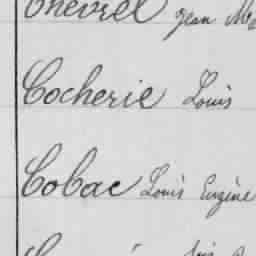 Chevrel Jean
Cocherie Louis
Cobac Louis Eugène